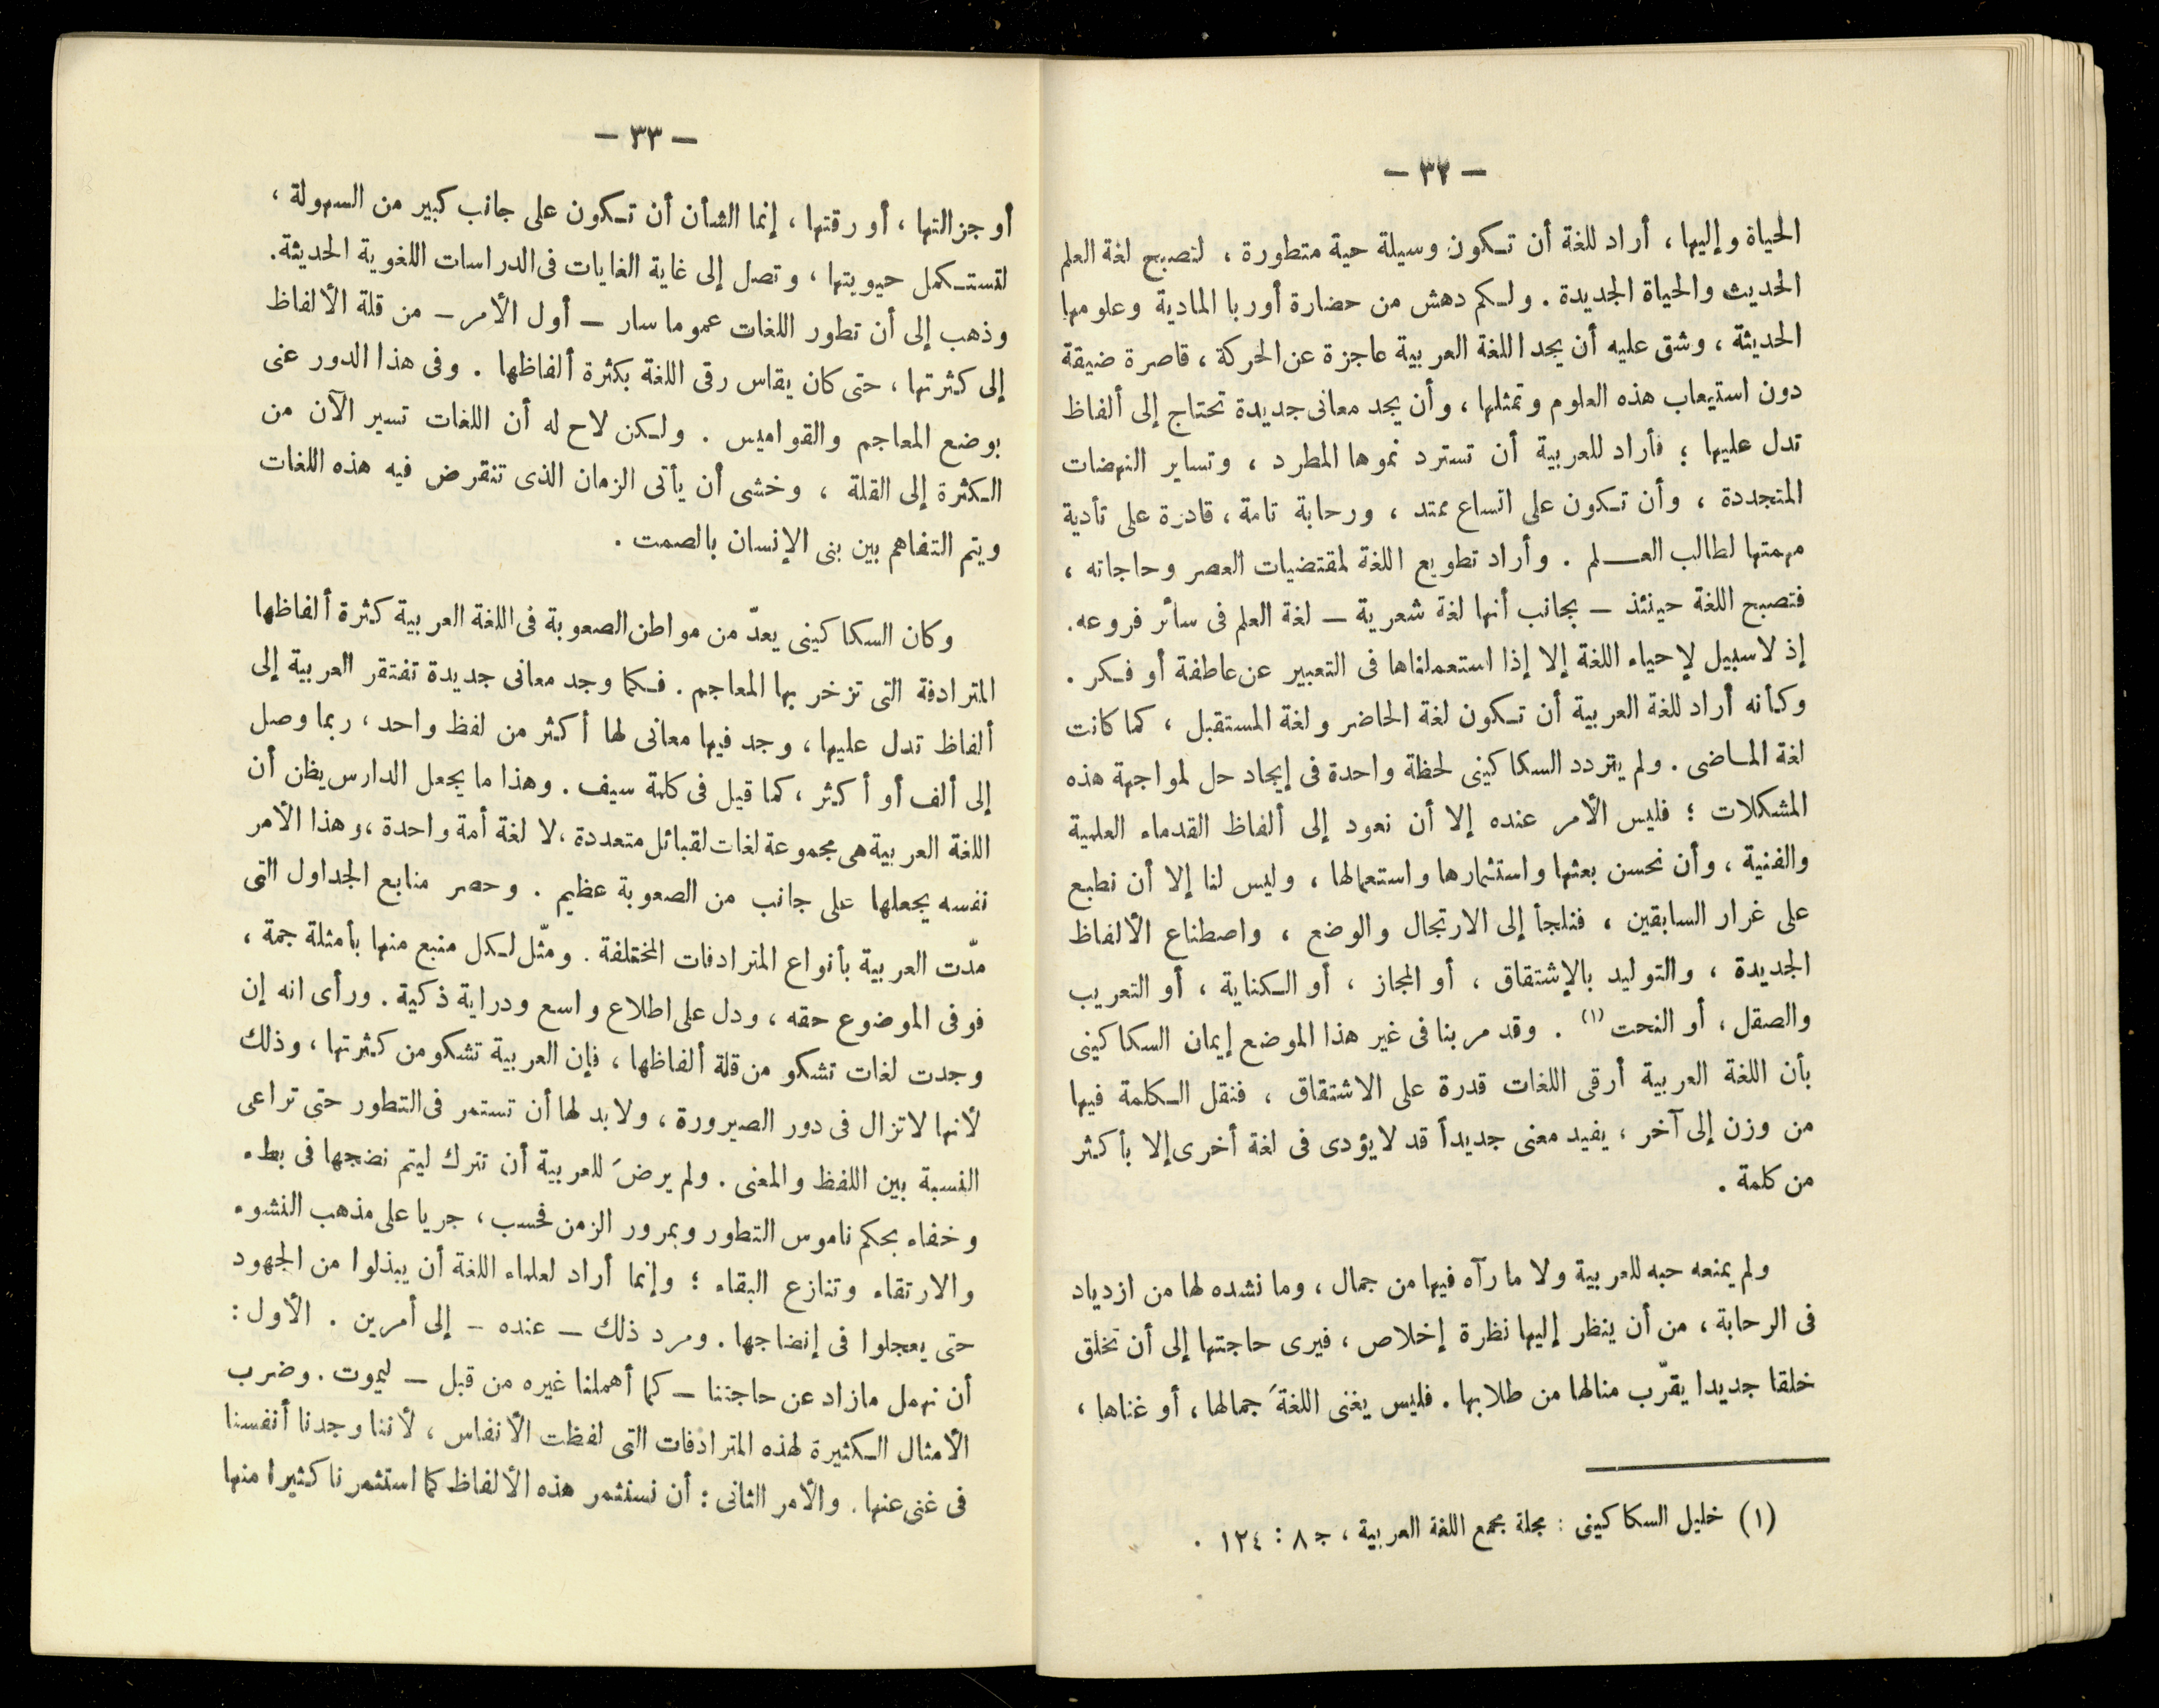 — ٣٢ —
الحياة وإليها ، أراد للغة أن تكون وسيلة حية متطورة ، لتصبح لغة العلم
الحديث والحياة الجديدة . ولكم دهش من حضارة أوربا المادية وعلومها
الحديثة ، وشق عليه أن يجد اللغة العربية عاجزة عن الحركة ، قاصرة ضيقة
دون استيعاب هذه العلوم وتمثلها ، وأن يجد معانى جديدة تحتاج إلى ألفاظ
تدل عليها ؛ فأراد للعربية أن تسترد نموها المطرد ، وتساير النهضات
المتجددة ، وأن تكون على اتساع ممتد ، ورحابة تامة ، قادرة على تأدية
مهمتها لطالب العلم . وأراد تطويع اللغة لمقتضيات العصر وحاجاته ،
فتصبح اللغة حينئذ — بجانب أنها لغة شعرية — لغة العلم فى سائر فروعه .
إذ لا سبيل لإحياء اللغة إلا إذا استعملناها فى التعبير عن عاطفة أو فكر .
وكأنه أراد للغة العربية أن تكون لغة الحاضر ولغة المستقبل ، كما كانت
لغة الماضى . ولم يتردد السكاكينى لحظة واحدة فى إيجاد حل لمواجهة هذه
المشكلات ؛ فليس الأمر عنده إلا أن نعود إلى ألفاظ القدماء العلمية
والفنية ، وأن نحسن بعثها واستثمارها واستعمالها ، وليس لنا إلا أن نطبع
على غرار السابقين ، فنلجأ إلى الارتجال والوضع ، واصطناع الألفاظ
الجديدة ، والتوليد بالإشتقاق ، أو المجاز ، أو الكناية ، أو التعريب
والصقل ، أو النحت (١) . وقد مر بنا فى غير هذا الموضع إيمان السكاكينى
بأن اللغة العربية أرقى اللغات قدرة على الاشتقاق ، فنقل الكلمة فيها
من وزن إلى آخر ، يفيد معنى جديداً قد لا يؤدى فى لغة أخرى إلا بأكثر
من كلمة .
ولم يمنعه حبه للعربية ولا ما رآه فيها من جمال ، وما نشده لها من ازدياد
فى الرحابة ، من أن ينظر إليها نظرة إخلاص ، فيرى حاجتها إلى أن تخلق
خلقا جديدا يقرّب منالها من طلابها . فليس يغنى اللغةَ جمالها ، أو غناها ،
(١) خليل السكاكينى : مجلة مجمع اللغة العربية ، جـ ٨ : ١٢٤ .
— ٣٣ —
أو جزالتها ، أو رقتها ، إنما الشأن أن تكون على جانب كبير من السهولة ،
لتستكمل حيويتها ، وتصل إلى غاية الغايات فى الدراسات اللغوية الحديثة .
وذهب إلى أن تطور اللغات عموما سار — أول الأمر — من قلة الألفاظ
إلى كثرتها ، حتى كان يقاس رقى اللغة بكثرة ألفاظها . وفى هذا الدور عنى
بوضع المعاجم والقواميس . ولكن لاح له أن اللغات تسير الآن من
الكثرة إلى القلة ، وخشى أن يأتى الزمان الذى تنقرض فيه هذه اللغات
ويتم التفاهم بين بنى الإنسان بالصمت .
وكان السكاكينى يعدّ من مواطن الصعوبة فى اللغة العربية كثرة ألفاظها
المترادفة التى تزخر بها المعاجم . فكما وجد معانى جديدة تفتقر العربية إلى
ألفاظ تدل عليها ، وجد فيها معانى لها أكثر من لفظ واحد ، ربما وصل
إلى ألف أو أكثر ، كما قيل فى كلمة سيف . وهذا ما يجعل الدارس يظن أن
اللغة العربية هى مجموعة لغات لقبائل متعددة ، لا لغة أمة واحدة ، وهذا الأمر
نفسه يجعلها على جانب من الصعوبة عظيم . وحصر منابع الجداول التى
مدّت العربية بأنواع المترادفات المختلفة . ومثّل لكل منبع منها بأمثلة جمة ،
فوفى الموضوع حقه ، ودل على اطلاع واسع ودراية ذكية . ورأى انه إن
وجدت لغات تشكو من قلة ألفاظها ، فإن العربية تشكو من كثرتها ، وذلك
لأنها لا تزال فى دور الصيرورة ، ولا بد لها أن تستمر فى التطور حتى تراعى
النسبة بين اللفظ والمعنى . ولم يرضَ للعربية أن تترك ليتم نضجها فى بطء
وخفاء بحكم ناموس التطور وبمرور الزمن فحسب ، جريا على مذهب النشوء
والارتقاء وتنازع البقاء ؛ وإنما أراد لعلماء اللغة أن يبذلوا من الجهود
حتى يعجلوا فى إنضاجها . ومرد ذلك — عنده — إلى أمرين . الأول :
أن نهمل مازاد عن حاجتنا — كما أهملنا غيره من قبل — ليموت . وضرب
الأمثال الكثيرة لهذه المترادفات التى لفظت الأنفاس ، لأننا وجدنا أنفسنا
فى غنى عنها . والأمر الثانى : أن نستثمر هذه الألفاظ كما استثمرنا كثيرا منها